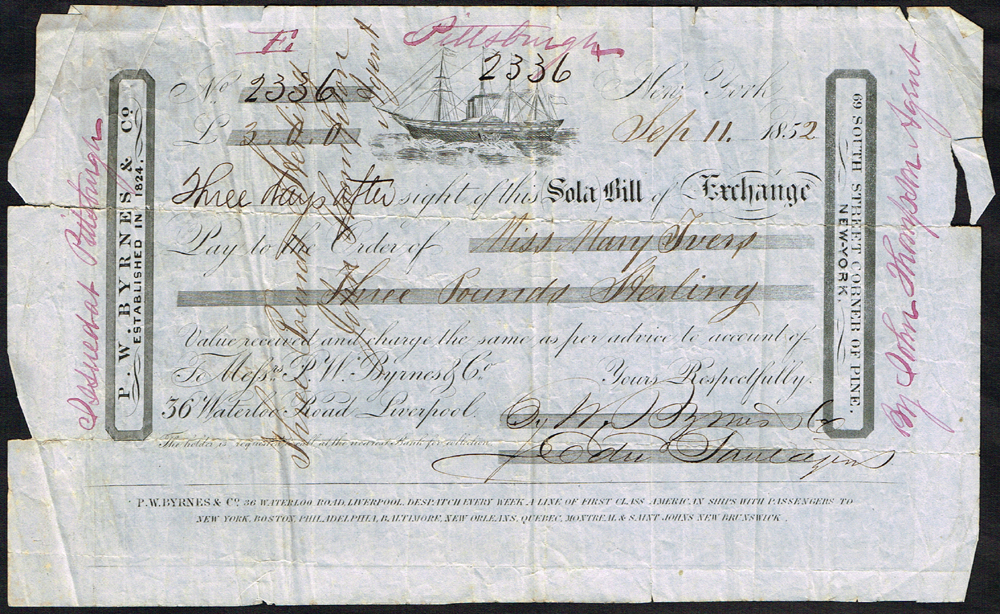 E. Pittsburgh
No. 2336 2336 New York
£ 3.0.0 Sep 11. 1852
Three days after sight of this Sola Bill of Exchange
Pay to the Order of Miss Mary Ivers
Three Pounds Sterling
Value received and charge the same as per advice to account of
To Messrs. P. W. Byrnes & Co. Yours Respectfully.
36 Waterloo Road Liverpool. P. W. Byrnes & Co
The holder is requested to call at the nearest Bank for collection
Edw
P.W. BYRNES & Co. 36 WATERLOO ROAD, LIVERPOOL. DESPATCH EVERY WEEK A LINE OF FIRST CLASS AMERICAN SHIPS WITH PASSENGERS TO
NEW YORK, BOSTON, PHILADELPHIA, BALTIMORE, NEW ORLEANS, QUEBEC, MONTREAL & SAINT JOHNS NEW BRUNSWICK.
P. W. BYRNES & Co.
ESTABLISHED IN 1824.
69 SOUTH STREET CORNER OF PINE.
NEW-YORK.
Issued at Pittsburgh
By John Thompson Agent
Three Pounds Sterling
John Thompson
Agent